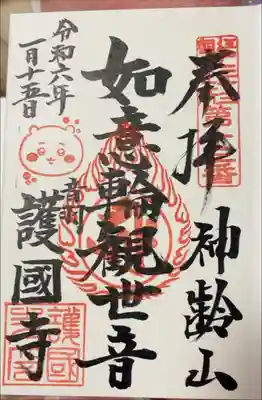 奉拝 神齢山
如意輪観世音
音羽 護國寺
令和六年
一月十五日
護國寺